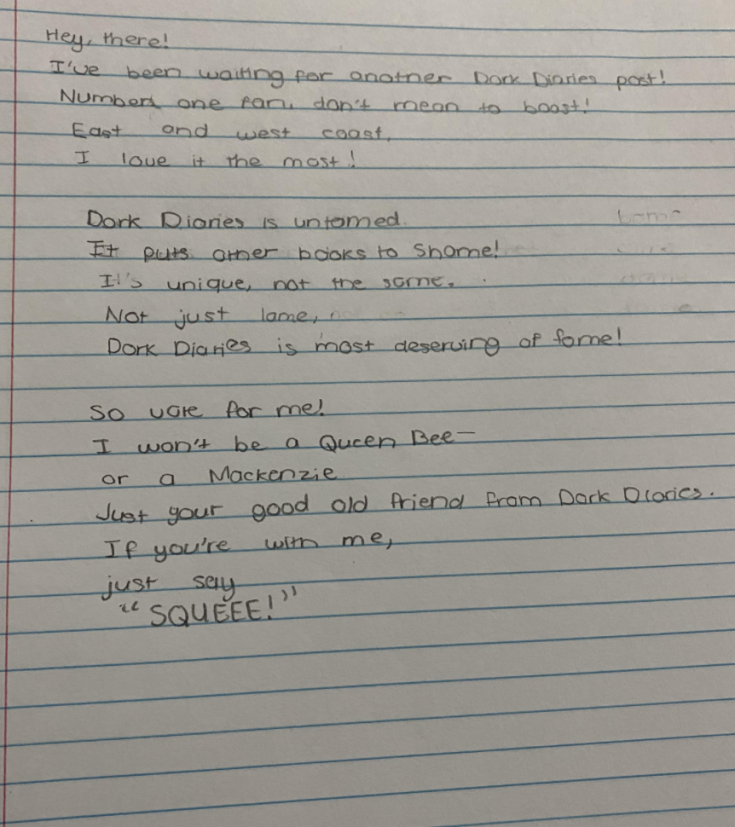 Hey, there!
I've been waiting for another Dork Diaries post!
Number one fan, don't mean to boast!
East and west coast,
I love it the most!
Dork Diaries is untamed.
It puts other books to shame!
It's unique, not the same.
Not just lame,
Dork Diaries is most deserving of fame!
So vote for me!
I won't be a Queen Bee—
or a Mackenzie
Just your good old friend from Dork Diaries.
If you're with me,
just say
"SQUEEE!"